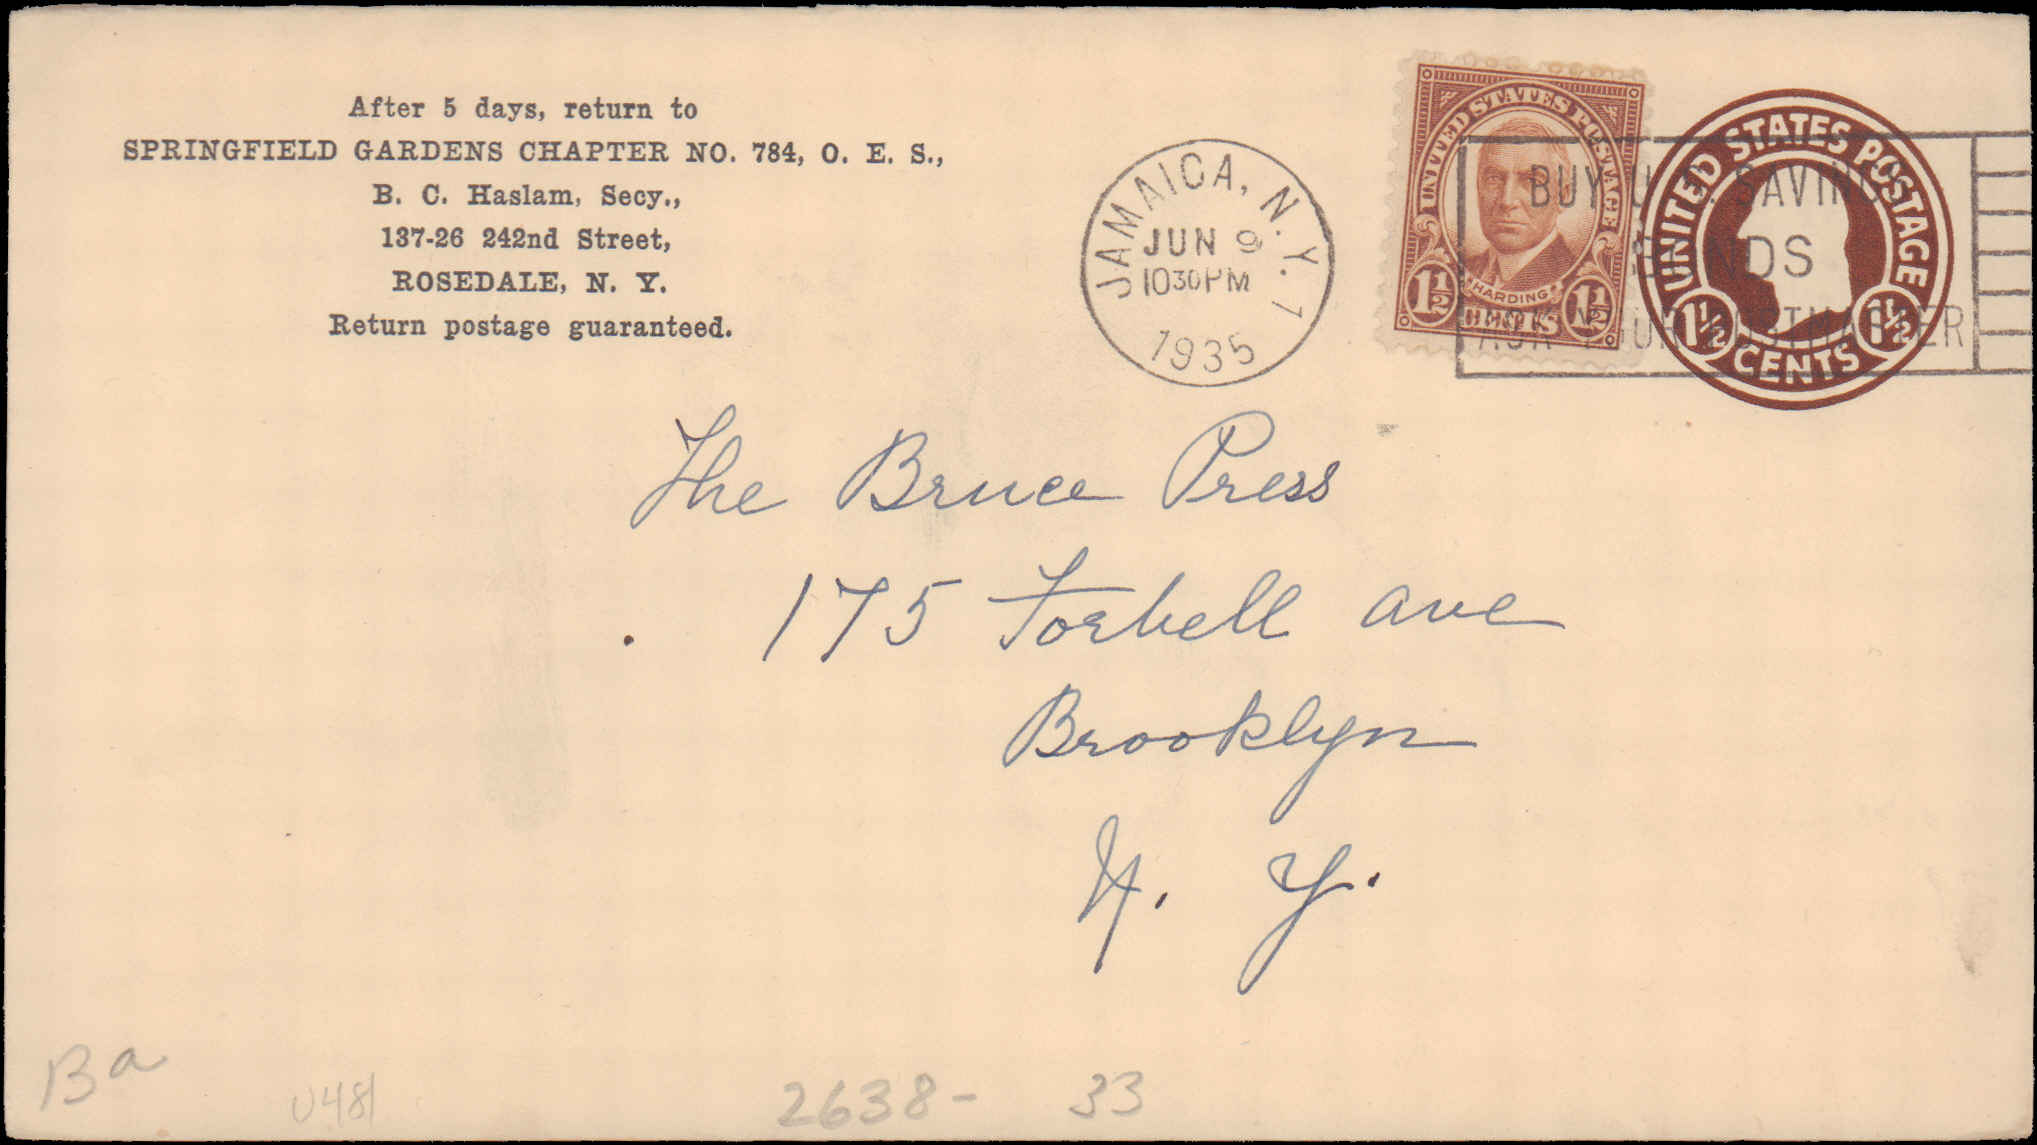 After 5 days, return to
SPRINGFIELD GARDENS CHAPTER NO. 784, O. E. S.,
B. C. Haslam, Secy.,
137-26 242nd Street,
ROSEDALE, N. Y.
Return postage guaranteed.
JAMAICA, N.Y. 1
JUN 9
1030PM
1935
UNITED STATES POSTAGE
HARDING
1½ CENTS 1½
UNITED STATES POSTAGE
1½ CENTS 1½
BUY U.S. SAVINGS
BONDS
ASK YOUR POSTMASTER
The Bruce Press
175 Forbell ave
Brooklyn
N. Y.
Ba
U481
2638- 33